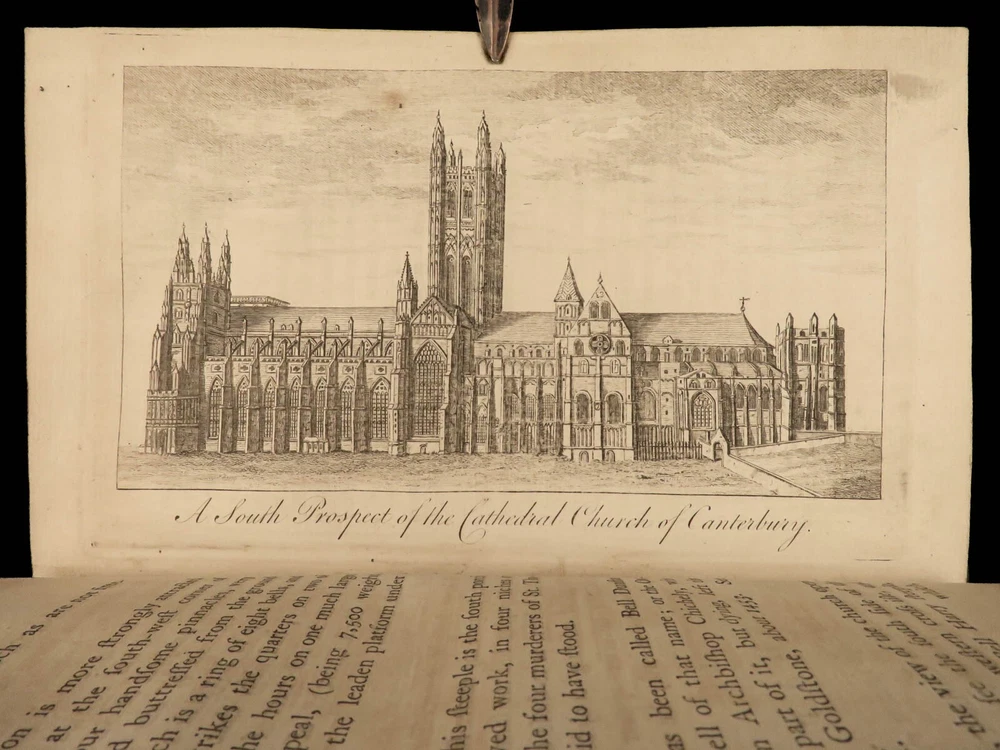 A South Prospect of the Cathedral Church of Canterbury.
as are not
on is more ſtrongly
at the ſouth-weſt
ur handſome pinnacles,
d buttreſſed from the
ch is a ring of eight
rikes the quarters on
e hours on one much
peal, (being 7,500 weigh
the leaden platform under
his ſteeple is the ſouth
ved work, in four
he four murderers of St.
id to have ſtood.
as been called Bell
ell of that name; or
Archbiſhop Chichely,
part of it, but dying
Goldſtone, about
the view of the church